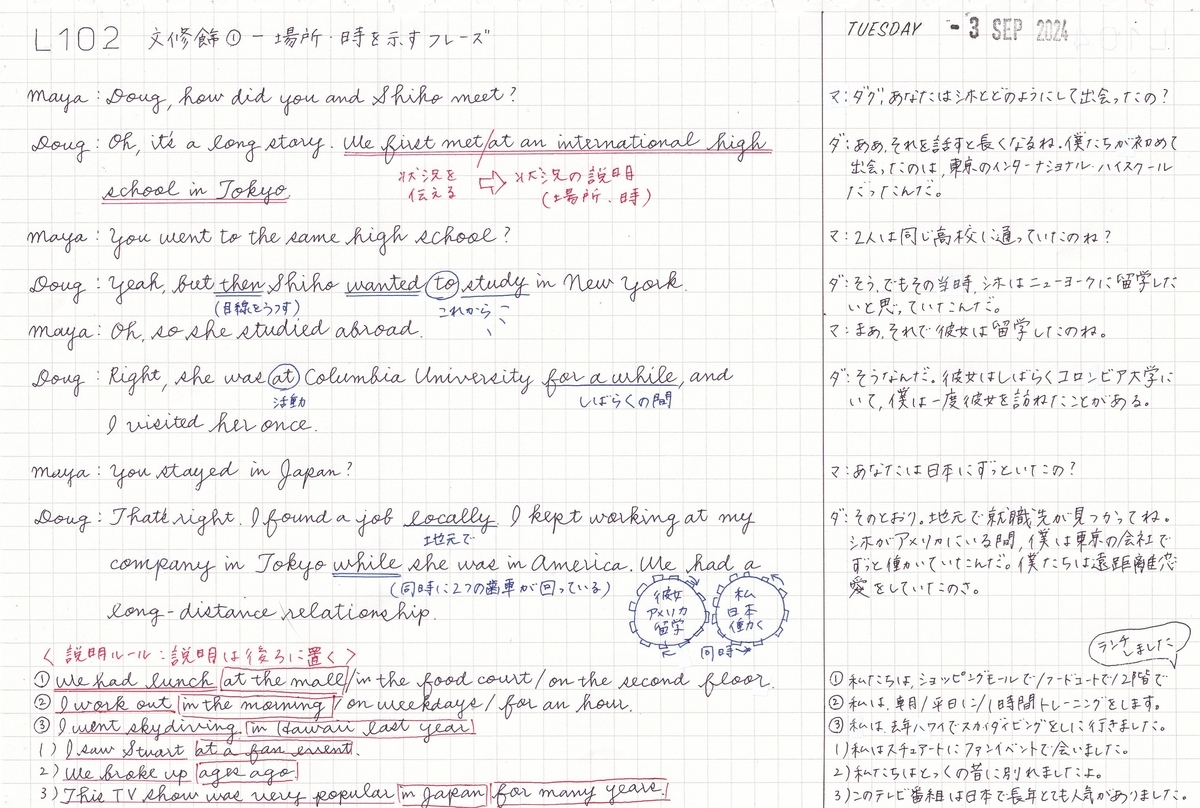 L102 文修飾① - 場所・時を示すフレーズ
TUESDAY - 3 SEP 2024
Maya : Doug, how did you and Shiho meet?
Doug : Oh, it's a long story. We first met/at an international high
school in Tokyo.
状況を
伝える
⇨ 状況の説明
(場所・時)
Maya : You went to the same high school?
Doug : Yeah, but then Shiho wanted to study in New York.
(目線をうつす)
これから
Maya : Oh, so she studied abroad.
Doug : Right, she was at Columbia University for a while, and
活動
しばらくの間
I visited her once.
Maya : You stayed in Japan?
Doug : That's right. I found a job locally. I kept working at my
地元で
company in Tokyo while she was in America. We had a
(同時に2つの歯車が回っている)
long-distance relationship.
彼女
アメリカ
留学
私
日本
働く
同時
マ:ダグ、あなたはシホとどのようにして出会ったの?
ダ:ああ、それを話すと長くなるね。僕たちが初めて
出会ったのは、東京のインターナショナル・ハイスクール
だったんだ。
マ:2人は同じ高校に通っていたのね?
ダ:そう、でもその当時、シホはニューヨークに留学した
いと思っていたんだ。
マ:まあ、それで彼女は留学したのね。
ダ:そうなんだ。彼女はしばらくコロンビア大学に
いて、僕は一度彼女を訪ねたことがある。
マ:あなたは日本にずっといたの?
ダ:そのとおり。地元で就職先が見つかってね。
シホがアメリカにいる間、僕は東京の会社で
ずっと働いていたんだ。僕たちは遠距離恋
愛をしていたのさ。
<説明ルール:説明は後ろに置く>
① We had lunch at the mall/in the food court/on the second floor.
② I work out in the morning/on weekdays/for an hour.
③ I went skydiving in Hawaii last year
1) I saw Stuart at a fan event.
2) We broke up ages ago.
3) This TV show was very popular in Japan for many years.
ランチしました
① 私たちは、ショッピングモールで/フードコートで/2階で
② 私は、朝/平日に/1時間トレーニングをします。
③ 私は、去年ハワイでスカイダイビングをしに行きました。
1) 私はスチュアートにファンイベントで会いました。
2) 私たちはとっくの昔に別れましたよ。
3) このテレビ番組は日本で長年とても人気がありました。